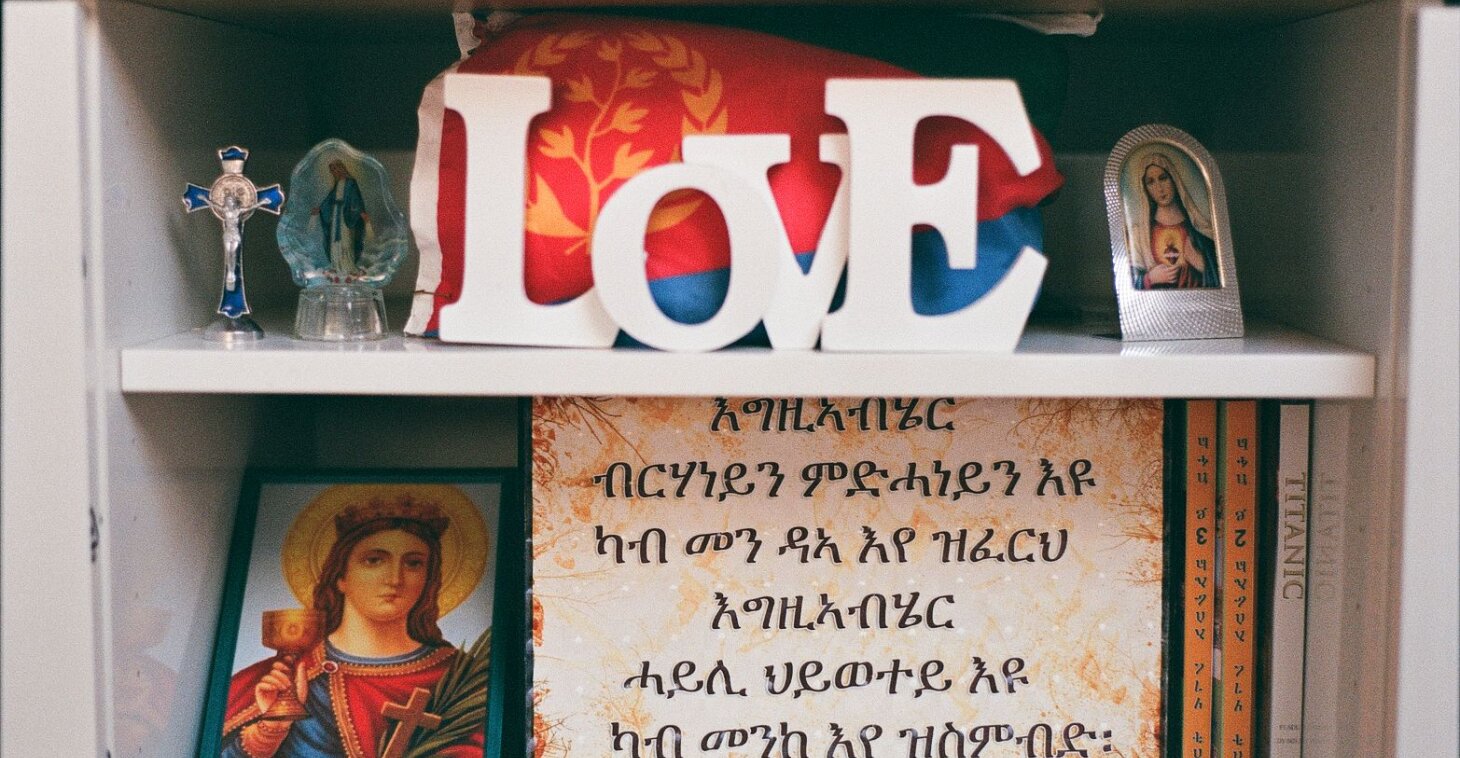 LOVE
እግዚኣብሄር
ብርሃነይን ምድሓነይን እዩ
ካብ መን ዳኣ እየ ዝፈርህ
እግዚኣብሄር
ሓይሊ ህይወተይ እዩ
ካብ መንከ እየ ዝስምብድ፧
TITANIC